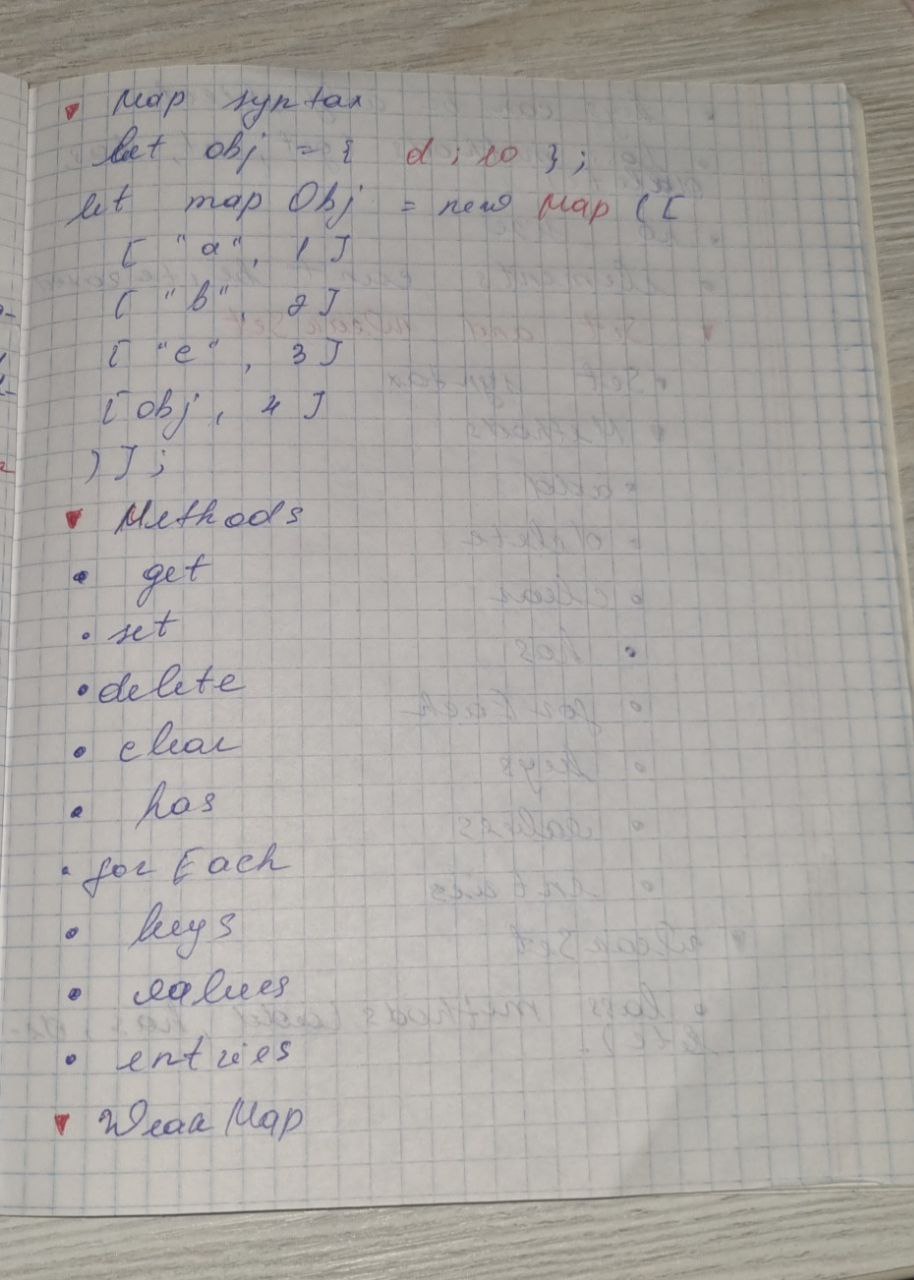 Map syntax
let obj = { d ; 10 } ;
let map Obj = new Map ( [
[ "a", 1 ]
[ "b", 2 ]
[ "c" , 3 ]
[ obj , 4 ]
) ] ;
Methods
• get
• set
• delete
• clear
• has
• for Each
• keys
• values
• entries
Weak Map